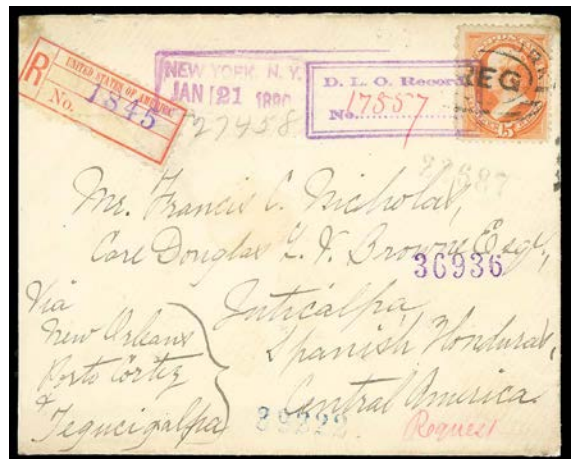 R
UNITED STATES OF AMERICA
No. 1845
NEW YORK, N.Y.
JAN 21 1890
27458
D. L. O. Record
No. 17557
REG
15
36936
Mr. Francis C. Nicholas,
Care Douglas L. V. Browne Esqr,
Juticalpa
Spanish Honduras,
Central America
Via
New Orleans
Porto Cortez
&
Tegucigalpa
89222
Request